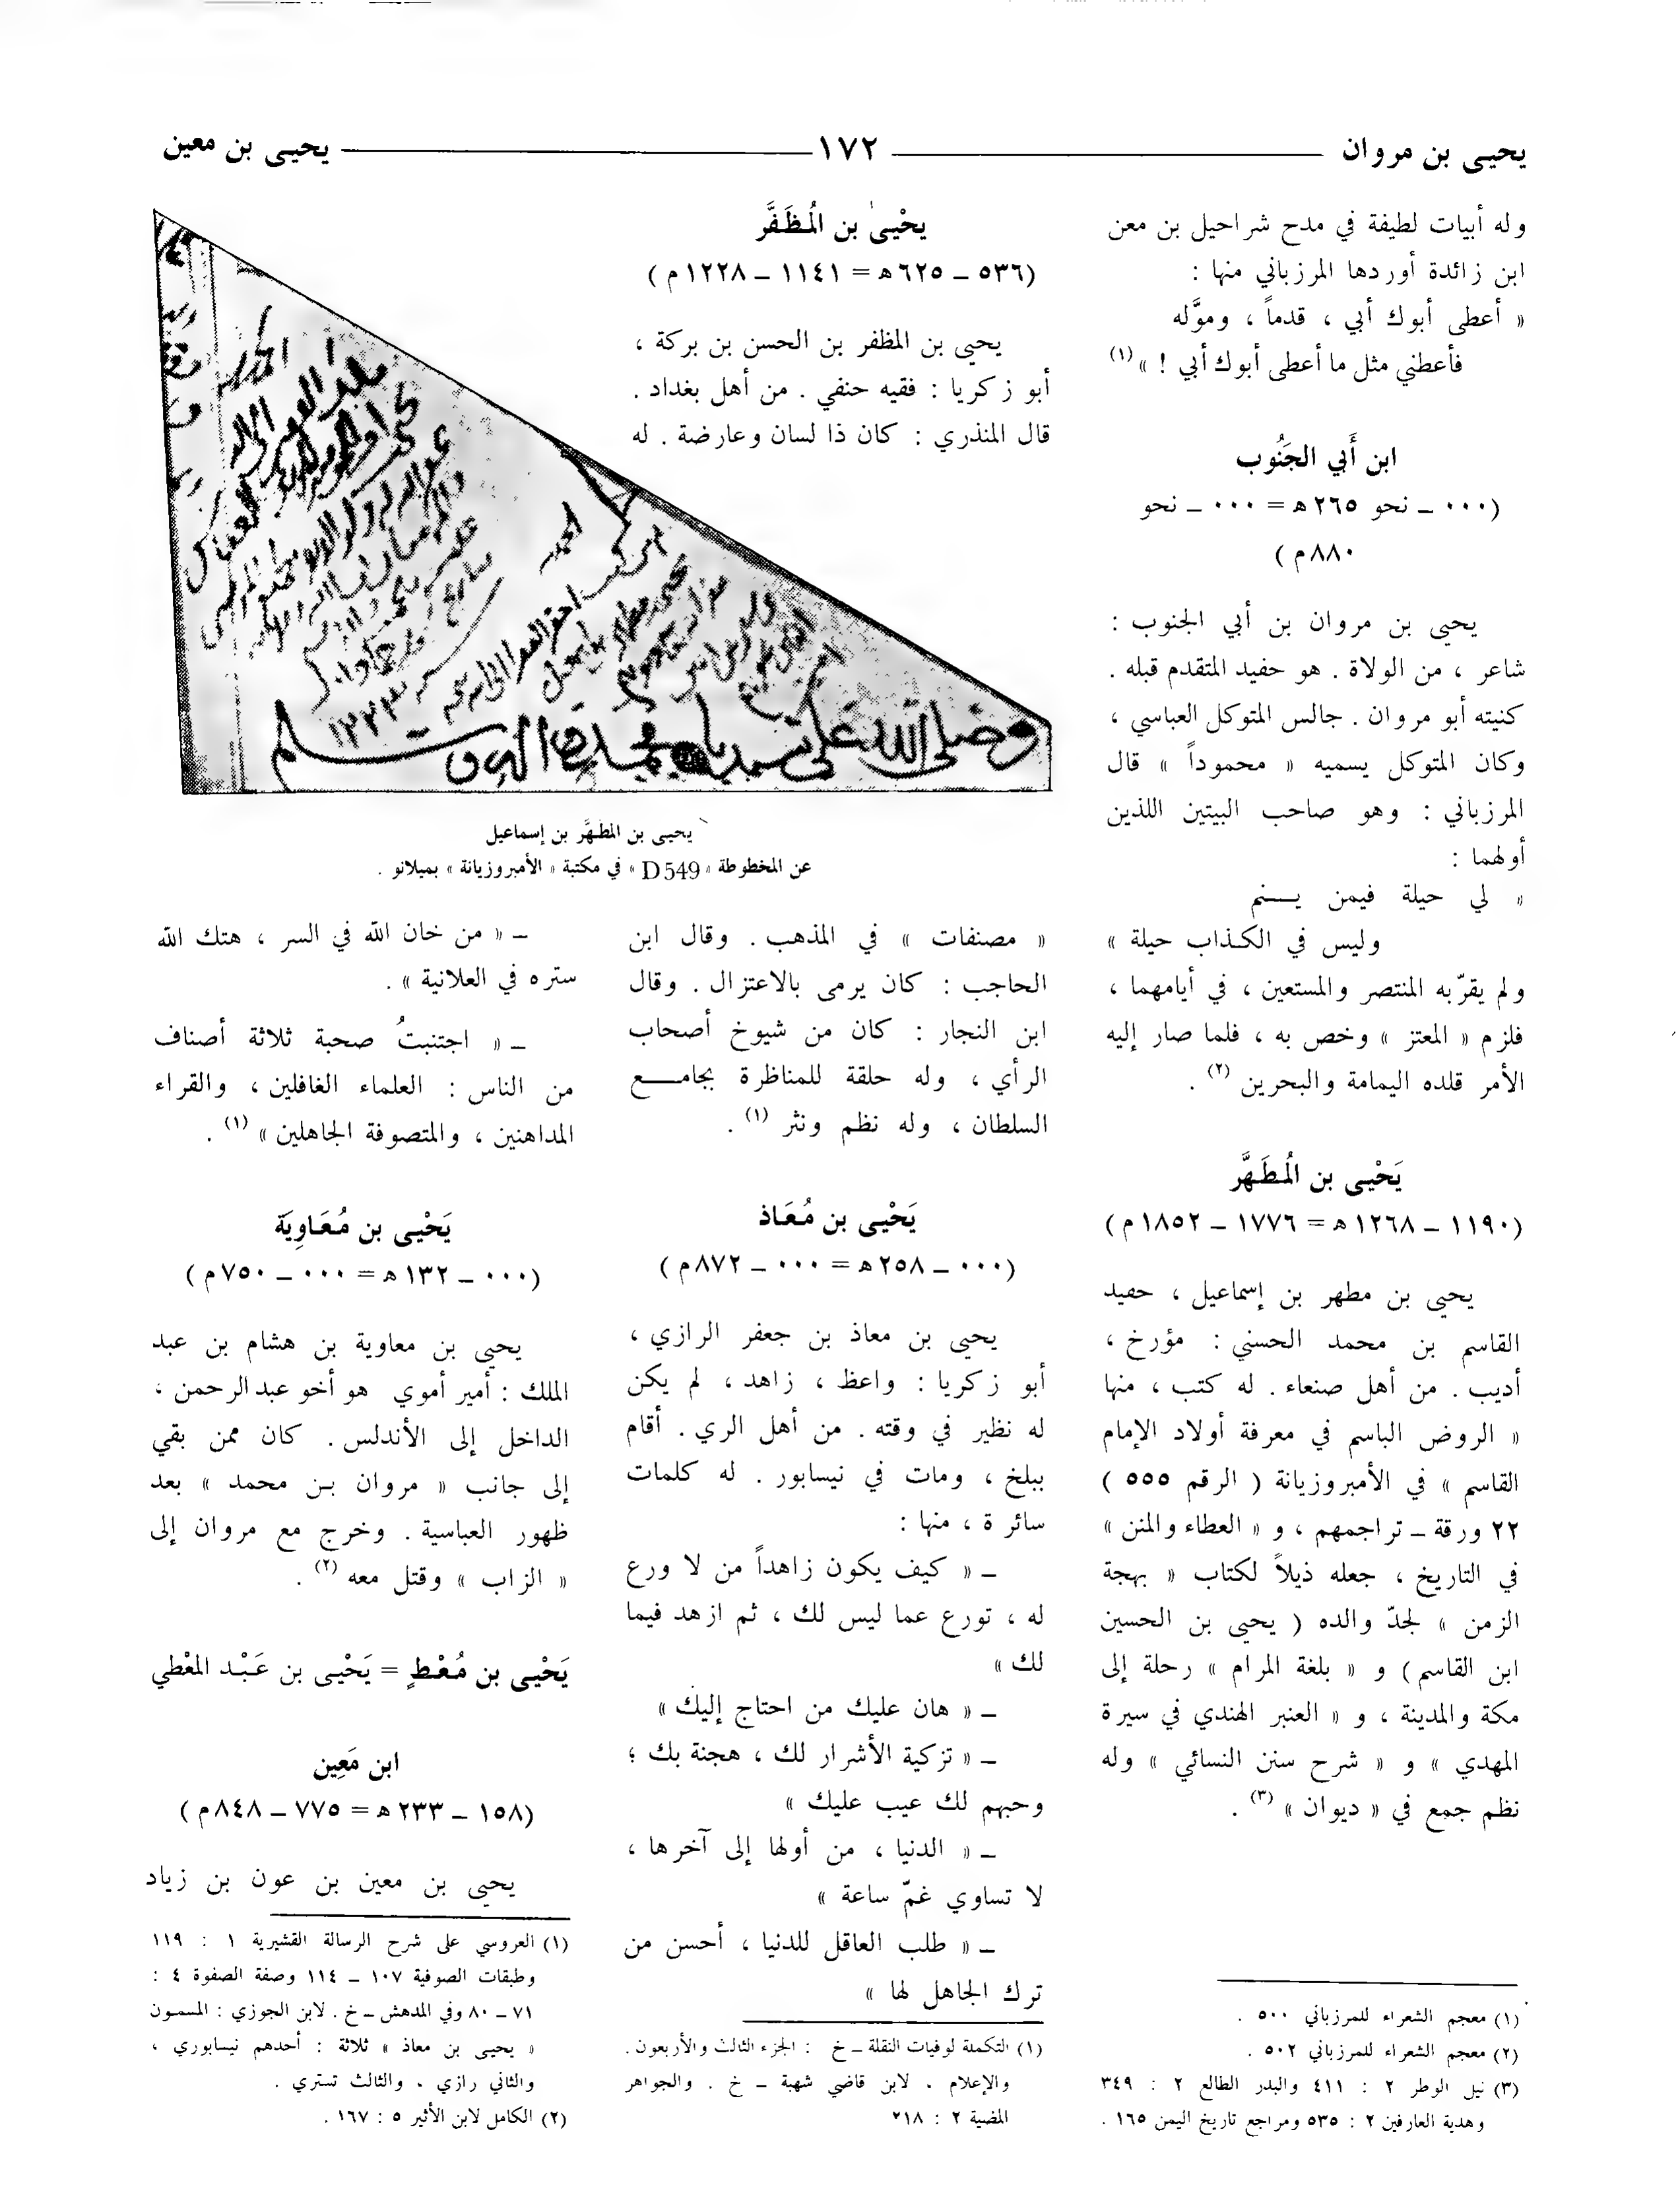 يحيى بن مروان ١٧٢ يحيى بن معين
وله أبيات لطيفة في مدح شراحيل بن معن
ابن زائدة أوردها المرزباني منها :
« أعطى أبوك أبي ، قدماً ، وموَّله
فأعطني مثل ما أعطى أبوك أبي ! » (١)
ابن أَبي الجَنُوب
(٠٠٠ – نحو ٢٦٥ ه = ٠٠٠ – نحو
٨٨٠ م )
يحيى بن مروان بن أبي الجنوب :
شاعر ، من الولاة . هو حفيد المتقدم قبله .
كنيته أبو مروان . جالس المتوكل العباسي ،
وكان المتوكل يسميه « محموداً » قال
المرزباني : وهو صاحب البيتين اللذين
أولهما :
« لي حيلة فيمن يـنـم
وليس في الكـذاب حيلة »
ولم يقرّبه المنتصر والمستعين ، في أيامهما ،
فلزم « المعتز » وخص به ، فلما صار إليه
الأمر قلده اليمامة والبحرين (٢) .
يَحْيى بن المُطَهَّر
(١١٩٠ – ١٢٦٨ ه = ١٧٧٦ – ١٨٥٢ م )
يحيى بن مطهر بن إسماعيل ، حفيد
القاسم بن محمد الحسني : مؤرخ ،
أديب . من أهل صنعاء . له كتب ، منها
« الروض الباسم في معرفة أولاد الإمام
القاسم » في الأمبروزيانة ( الرقم ٥٥٥ )
٢٢ ورقة – تراجمهم ، و « العطاء والمنن »
في التاريخ ، جعله ذيلاً لكتاب « بهجة
الزمن » لجدّ والده ( يحيى بن الحسين
ابن القاسم ) و « بلغة المرام » رحلة إلى
مكة والمدينة ، و « العنبر الهندي في سيرة
المهدي » و « شرح سنن النسائي » وله
نظم جمع في « ديوان » (٣) .
(١) معجم الشعراء للمرزباني ٥٠٠ .
(٢) معجم الشعراء للمرزباني ٥٠٢ .
(٣) نيل الوطر ٢ : ٤١١ والبدر الطالع ٢ : ٣٤٩
وهدية العارفين ٢ : ٥٣٥ ومراجع تاريخ اليمن ١٦٥ .
يحْيىٰ بن المُظَفَّر
(٥٣٦ – ٦٢٥ ه = ١١٤١ – ١٢٢٨ م )
يحيى بن المظفر بن الحسن بن بركة ،
أبو زكريا : فقيه حنفي . من أهل بغداد .
قال المنذري : كان ذا لسان وعارضة . له
وصلى الله على سيدنا محمد واله وسلم
١٢٣٣
يحيى بن المطَهَّر بن إسماعيل
عن المخطوطة « D 549 » في مكتبة « الأمبروزيانة » بميلانو .
« مصنفات » في المذهب . وقال ابن
الحاجب : كان يرمى بالاعتزال . وقال
ابن النجار : كان من شيوخ أصحاب
الرأي ، وله حلقة للمناظرة بجامع
السلطان ، وله نظم ونثر (١) .
يَحْيى بن مُعَاذ
(٠٠٠ – ٢٥٨ ه = ٠٠٠ – ٨٧٢ م )
يحيى بن معاذ بن جعفر الرازي ،
أبو زكريا : واعظ ، زاهد ، لم يكن
له نظير في وقته . من أهل الري . أقام
ببلخ ، ومات في نيسابور . له كلمات
سائرة ، منها :
– « كيف يكون زاهداً من لا ورع
له ، تورع عما ليس لك ، ثم ازهد فيما
لك »
– « هان عليك من احتاج إليك »
– « تزكية الأشرار لك ، هجنة بك ؛
وحبهم لك عيب عليك »
– « الدنيا ، من أولها إلى آخرها ،
لا تساوي غمّ ساعة »
– « طلب العاقل للدنيا ، أحسن من
ترك الجاهل لها »
(١) التكملة لوفيات النقلة – خ : الجزء الثالث والأربعون .
والإعلام ، لابن قاضي شهبة – خ . والجواهر
المضية ٢ : ٢١٨
– « من خان الله في السر ، هتك الله
ستره في العلانية » .
– « اجتنبتُ صحبة ثلاثة أصناف
من الناس : العلماء الغافلين ، والقراء
المداهنين ، والمتصوفة الجاهلين » (١) .
يَحْيى بن مُعَاوِيَة
(٠٠٠ – ١٣٢ ه = ٠٠٠ – ٧٥٠ م )
يحيى بن معاوية بن هشام بن عبد
الملك : أمير أموي هو أخو عبد الرحمن ،
الداخل إلى الأندلس . كان ممن بقي
إلى جانب « مروان بن محمد » بعد
ظهور العباسية . وخرج مع مروان إلى
« الزاب » وقتل معه (٢) .
يَحْيى بن مُعْطٍ = يَحْيى بن عَبْد المعْطي
ابن مَعِين
(١٥٨ – ٢٣٣ ه = ٧٧٥ – ٨٤٨ م )
يحيى بن معين بن عون بن زياد
(١) العروسي على شرح الرسالة القشيرية ١ : ١١٩
وطبقات الصوفية ١٠٧ – ١١٤ وصفة الصفوة ٤ :
٧١ – ٨٠ وفي المدهش – خ . لابن الجوزي : المسمون
« يحيى بن معاذ » ثلاثة : أحدهم نيسابوري ،
والثاني رازي ، والثالث تستري .
(٢) الكامل لابن الأثير ٥ : ١٦٧ .